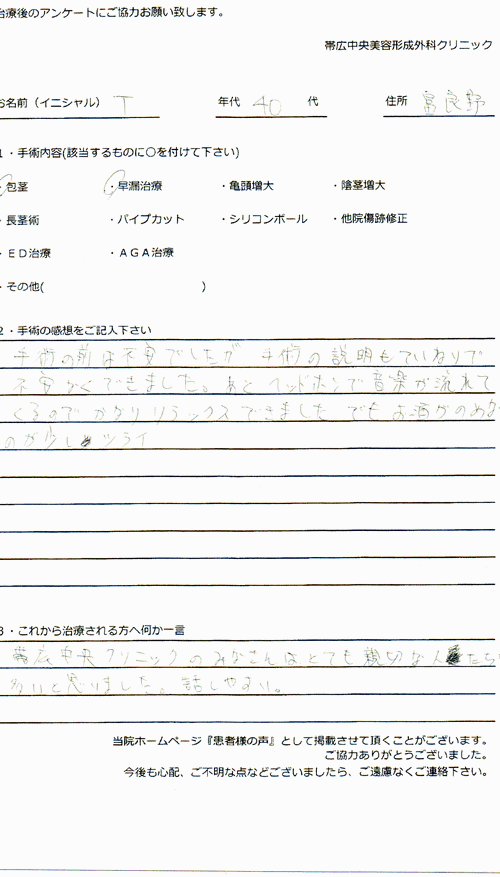 治療後のアンケートにご協力お願い致します。
帯広中央美容形成外科クリニック
お名前（イニシャル） T 年代 40 代 住所 富良野
1・手術内容(該当するものに○を付けて下さい)
・包茎 ・早漏治療 ・亀頭増大 ・陰茎増大
・長茎術 ・パイプカット ・シリコンボール ・他院傷跡修正
・ＥＤ治療 ・ＡＧＡ治療
・その他( )
2・手術の感想をご記入下さい
手術の前は不安でしたが 手術の説明もていねいで
不安なくできました。あと ヘッドホンで音楽が流れて
くるのでかなりリラックスできました でもお酒がのめない
のが少しツライ
3・これから治療される方へ何か一言
帯広中央クリニックのみなさんはとても親切な人たち
多いと思いました。話しやすい。
当院ホームページ『患者様の声』として掲載させて頂くことがございます。
ご協力ありがとうございました。
今後も心配、ご不明な点などございましたら、ご遠慮なくご連絡下さい。